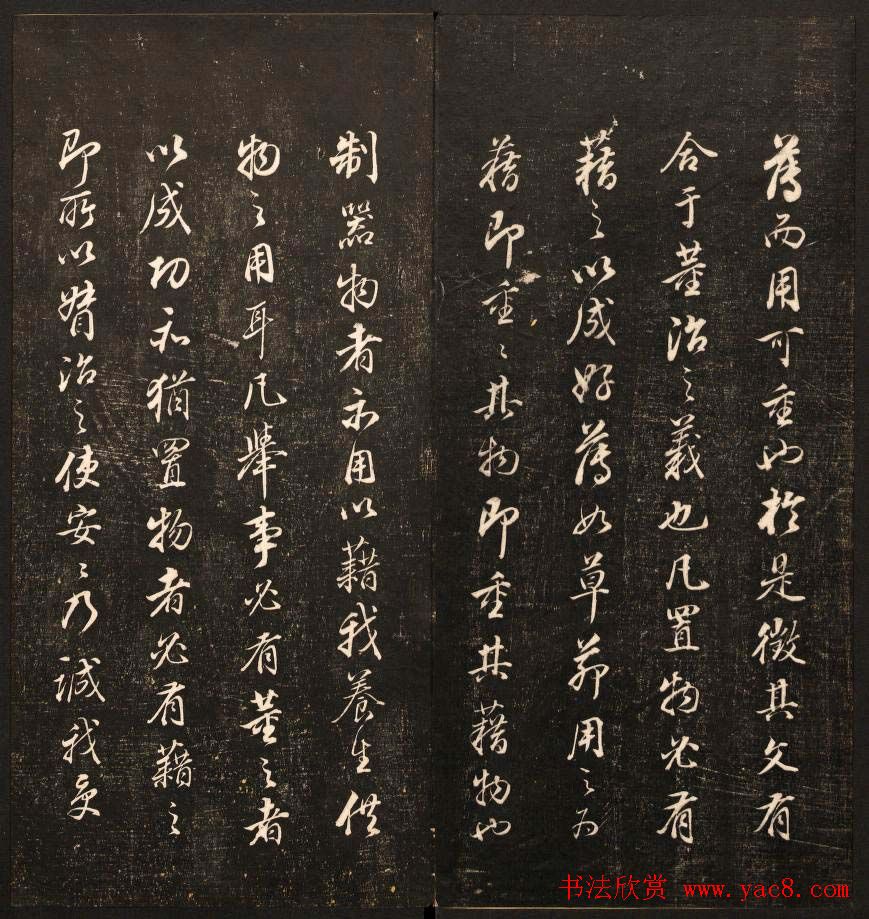 薄而用可重也於是徵其文有
合于董治之義也凡置物必有
藉之以成好薄如草茅用之為
藉即重々其物即重其藉物也
制器物者亦用以藉我養生供
物之用耳凡舉事必有董之者
以成功亦猶置物者必有藉之
即所以督治之使安々乃誠我更
书法欣赏 www.yac8.com